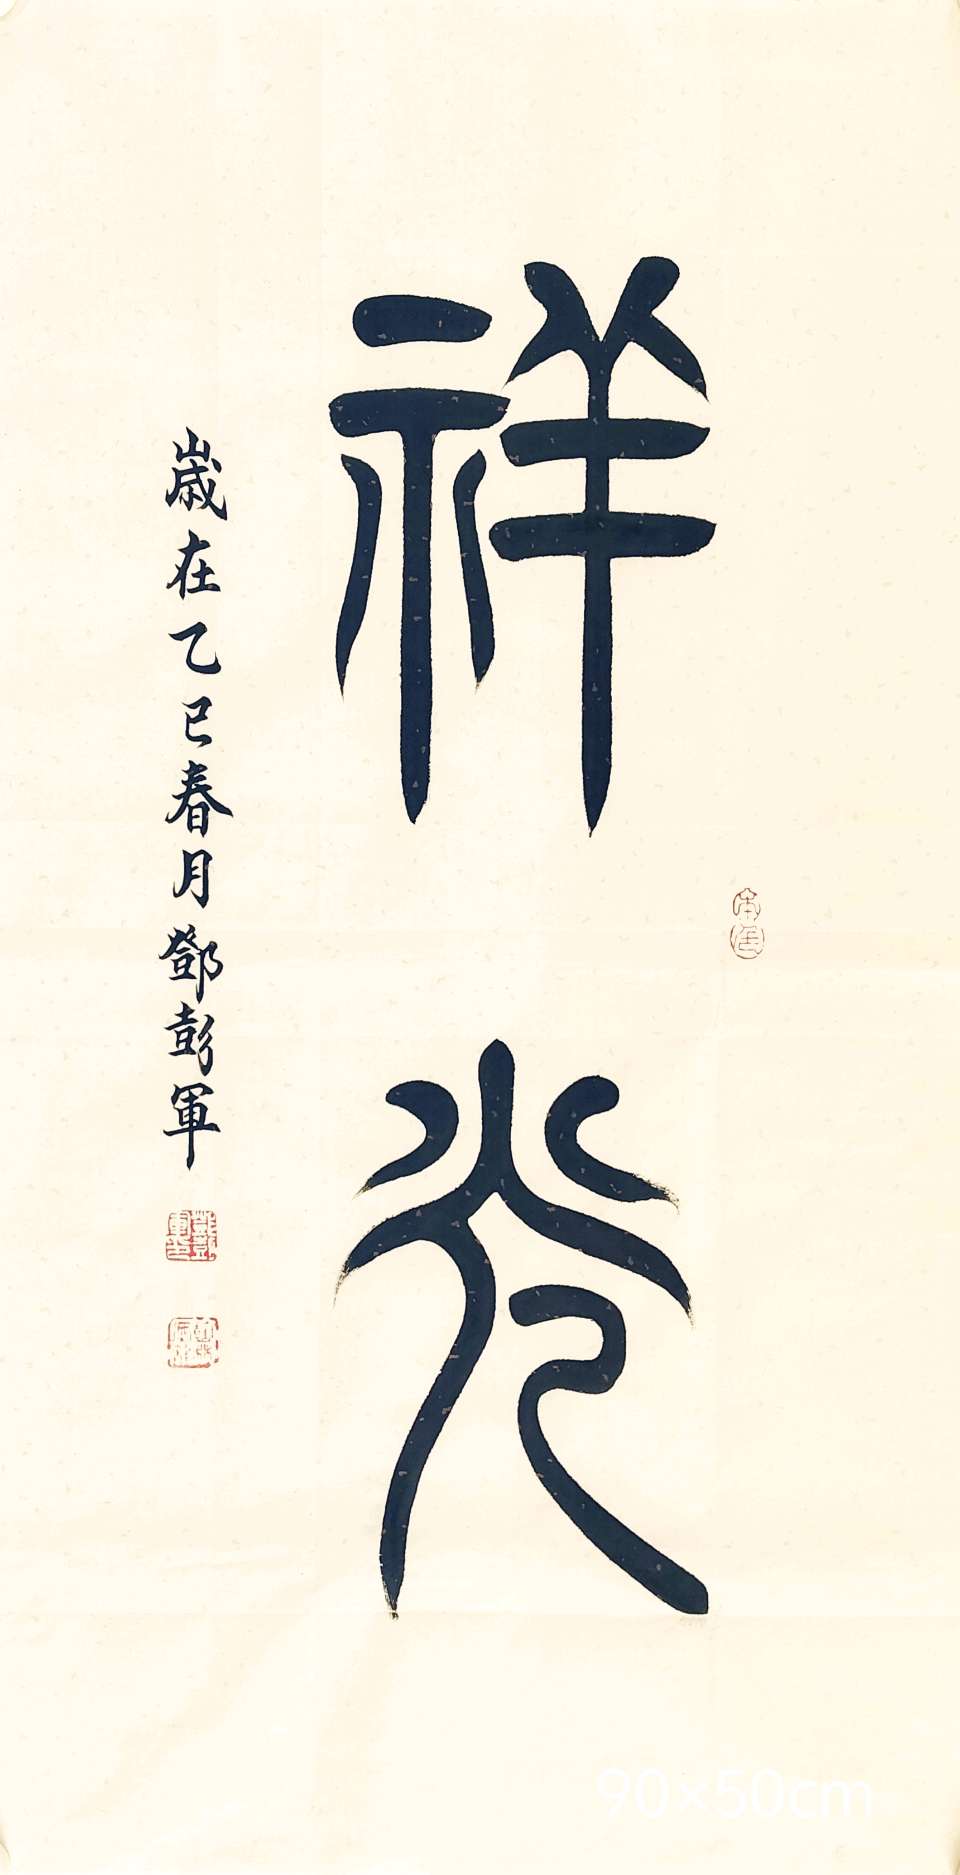 祥光
歲在乙巳春月鄧彭軍
90×50cm